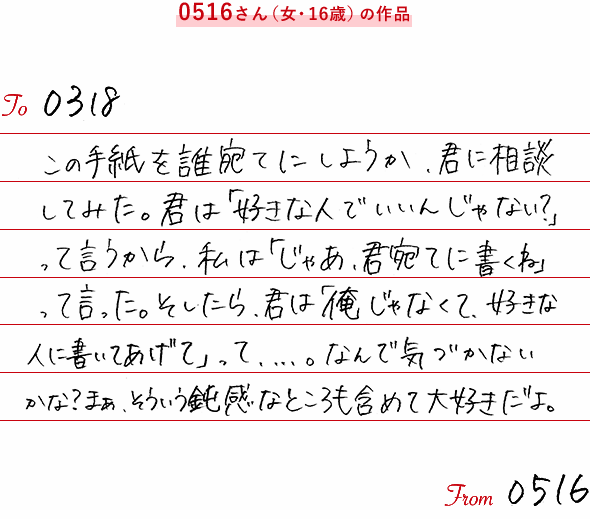 0516さん（女・16歳）の作品
To 0318
この手紙を誰宛てにしようか、君に相談
してみた。君は「好きな人でいいんじゃない?」
って言うから、私は「じゃあ、君宛てに書くね」
って言った。そしたら、君は「俺じゃなくて、好きな
人に書いてあげて」って、…。なんで気づかない
かな?まぁ、そういう鈍感なところも含めて大好きだよ。
From 0516